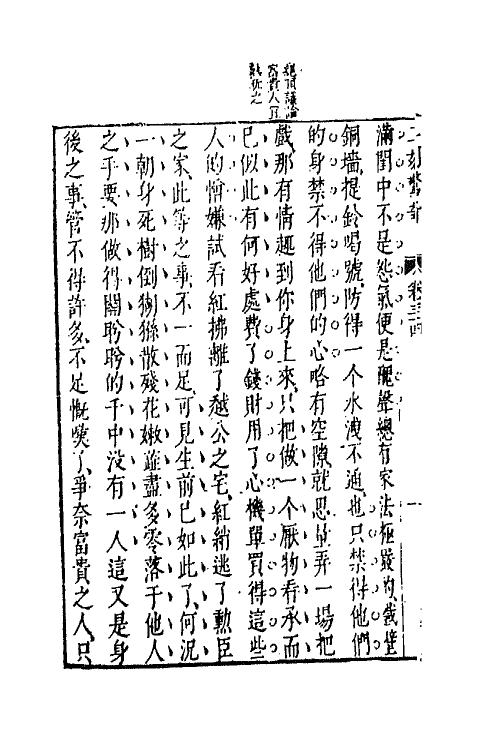 二刻驚奇
卷三十四
滿閨中不是怨氣便是醜聲總有家法極嚴的鐵壁
銅墻提鈴喝號防得一个水洩不通也只禁得他們
的身禁不得他們的心略有空隙就思量弄一場把
戲那有情趣到你身上來只把做一个厭物看承而
已似此有何好處費了錢財用了心機單買得這些
人的憎嫌試看紅拂離了越公之宅紅綃逃了勳臣
之家此等之事不一而足可見生前已如此了何況
一朝身死樹倒猢猻散殘花嫩蕋盡多零落于他人
之手要那做得關盼盼的千中沒有一人這又是身
後之事管不得許多不足慨嘆了爭奈富貴之人只
富貴人宜